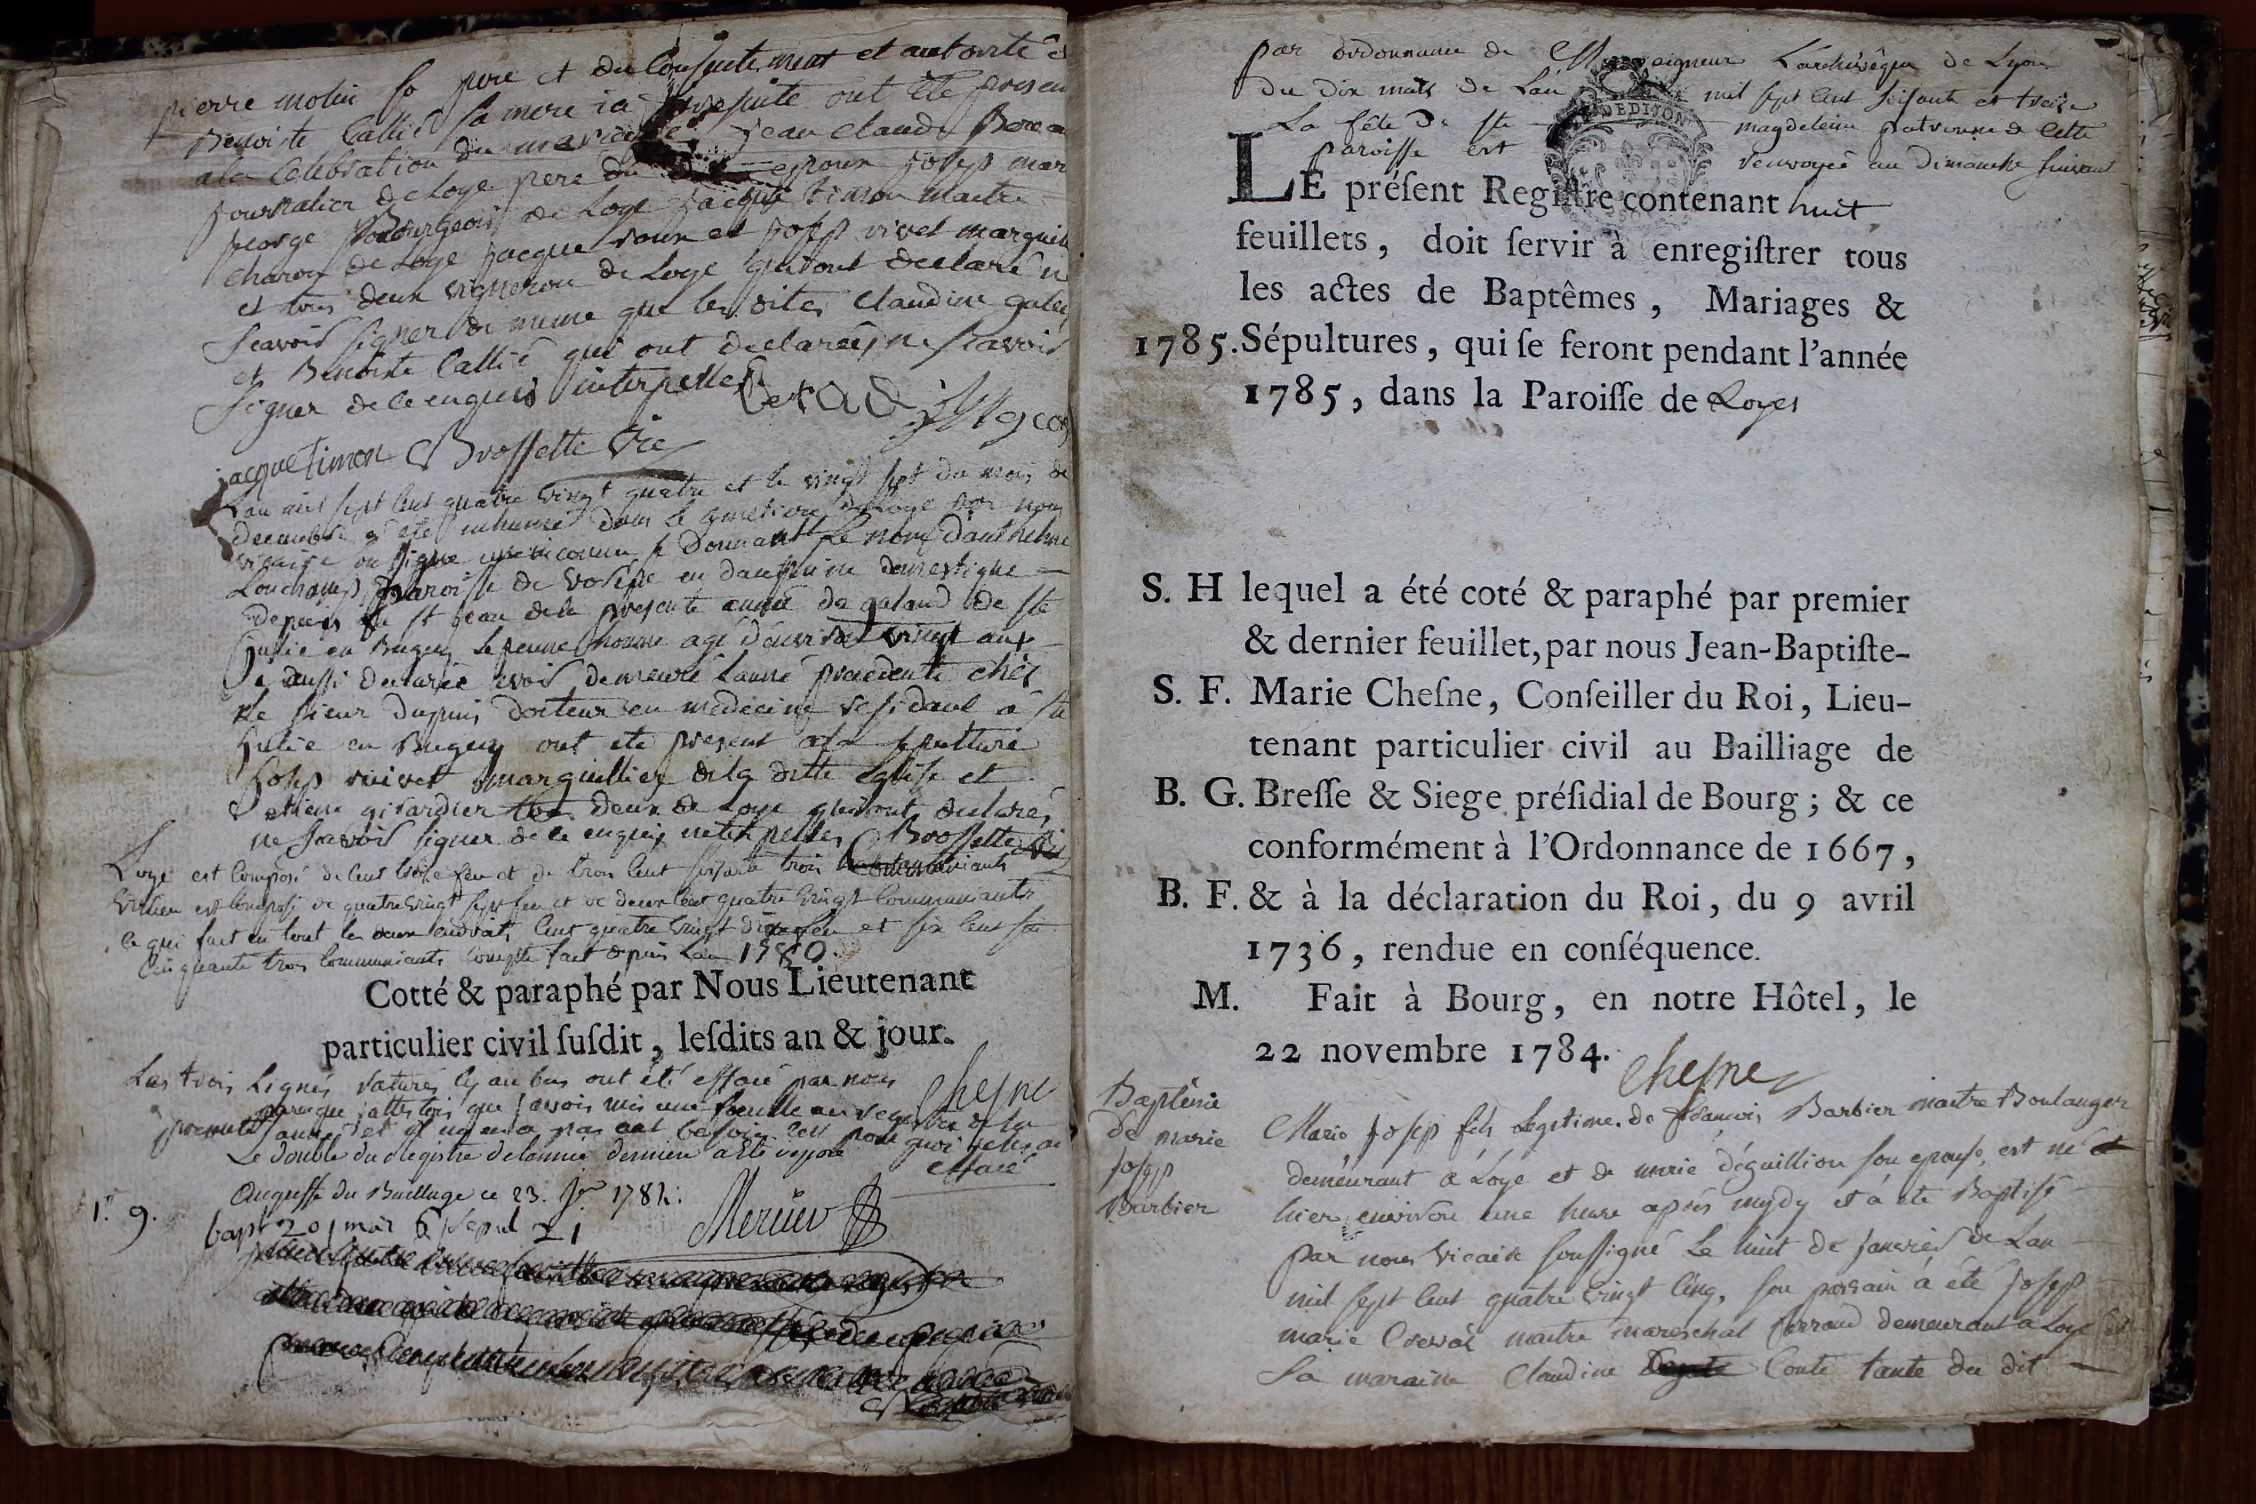 pierre molin so pere et du Consentement et autorité
Benoiste Callie sa mere ici presente ont été presen
ala Celebration du mariage jean claude
journalier de Loye pere du epoux josep mar
george Bourgeois de Loye jacque timon maitre
charon de Loye jacque roux et josep vivet marguill
et tous deux vigneron de Loye qui tout declaré n
scavoir signer de meme que les dites Claudine
et Benoiste Callie qui ont declareé ne scavoir
signer de ce enquis interpelles
jacque timon Brossette vic
Lan mil sept cent quatre vingt quatre et le vingt sept du mois de
decembre a eté inhumé dans le cimetiere de Loye par nous
vicaire sous signé un inconnu se donnant le nom d'anthelme
paroisse de en dauphine domestique
depuis la st jean de la presente année de galand de ste
julie en Bugey le jeune homme agé d'environ vingt ans
a aussi declareé avoir demeuré lanné precedente chés
le sieur dupuis docteur en medecine residant a ste
julie en Bugey ont ete present a la sepulture
josep vivet marguillier de la ditte eglise et
etiene girardier deux de Loye qui ont declarés
ne scavoir signer de ce enquis interpelles Brossette vic
Loye est composé de cent trois feu et de trois cent soixante trois Communiants
est composé de quatre vingt sept feu et de deux cent quatre vingt communiants
ce qui fait en tout les deux endroits cent quatre vingt dix feu et six cent
cinquante trois communiants compte fait depuis Lan 1780.
Cotté & paraphé par Nous Lieutenant
particulier civil susdit, lesdits an & jour.
Chesne
Les trois Lignes raturés cy au bas ont été effacé par nous
parceque j'attestois que j'avois mis une feuille au registre de la
presente année et il n'y en a pas eut besoin c'est pour quoi je les ai
effacé
Le double du Registre de lannée derniere a été
au greffe du Bailliage ce 23. jr 1784.
1.r 9.
bapt 20 mar 6 sepul 21 Mercier
par ordonnance de Monseigneur L'archevêque de Lyon
du dix mars de Lan mil sept cent soisante et treize
La fête de ste magdeleine patronne de cette
paroisse est renvoyée au dimanche suivant
DE DIJON
LE présent Registre contenant huit
feuillets, doit servir à enregistrer tous
les actes de Baptêmes, Mariages &
1785. Sépultures, qui se feront pendant l'année
1785, dans la Paroisse de Loyes
S. H lequel a été coté & paraphé par premier
& dernier feuillet, par nous Jean-Baptiste-
S. F. Marie Chesne, Conseiller du Roi, Lieu-
tenant particulier civil au Bailliage de
B. G. Bresse & Siege présidial de Bourg; & ce
conformément à l'Ordonnance de 1667,
B. F. & à la déclaration du Roi, du 9 avril
1736, rendue en conséquence.
M. Fait à Bourg, en notre Hôtel, le
22 novembre 1784.
Chesne
Baptême
de marie
josep
Barbier
Marie josep fils legitime de francois Barbier maitre Boulanger
demeurant a Loye et de marie déguillion son epouse, est né
hier environ une heure aprés mydy et a ete Baptisé
par nous vicaire soussigné Le huit de janvier de Lan
mil sept cent quatre vingt cinq, son parrain a été josep
marie maitre mareschal ferrand demeurant a Loye et
La maraine Claudine Conte tante du dit